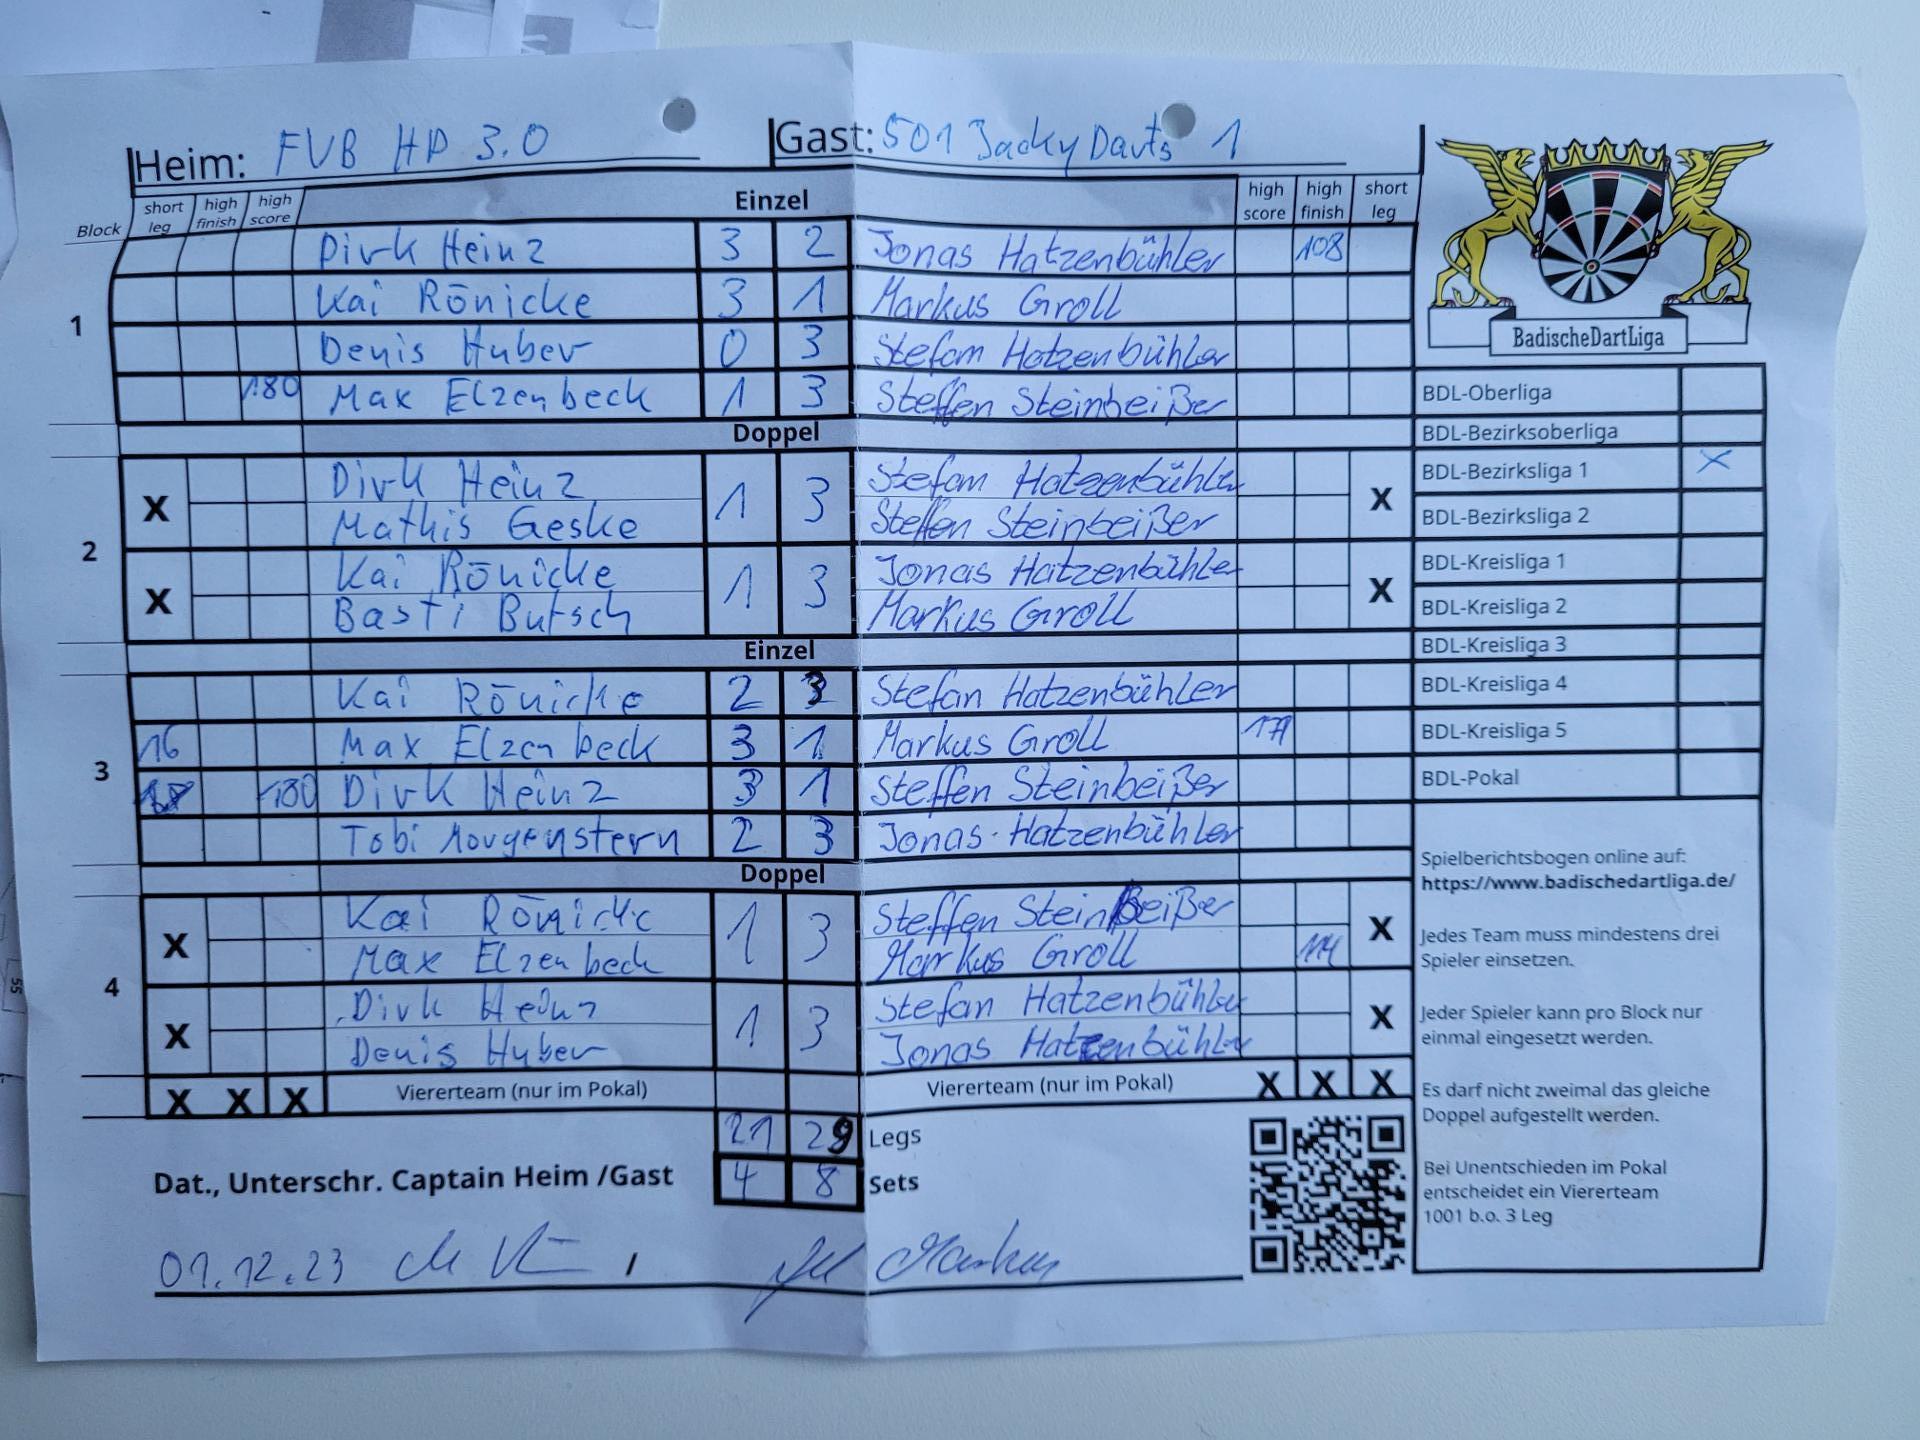 Heim: FVB HP 3.0 Gast: 501 Jacky Darts 1
Block short leg high finish high score Einzel high score high finish short leg
1
Dirk Heinz 3 2 Jonas Hatzenbühler 108
Kai Rönicke 3 1 Markus Groll
Denis Huber 0 3 Stefan Hatzenbühler
180 Max Elzenbeck 1 3 Steffen Steinbeißer
Doppel
2
X Dirk Heinz 1 3 Stefan Hatzenbühler X
Mathis Geske Steffen Steinbeißer
X Kai Rönicke 1 3 Jonas Hatzenbühler X
Basti Butsch Markus Groll
Einzel
3
Kai Rönicke 2 3 Stefan Hatzenbühler
16 Max Elzenbeck 3 1 Markus Groll
180 Dirk Heinz 3 1 Steffen Steinbeißer
Tobi Morgenstern 2 3 Jonas Hatzenbühler
Doppel
4
X Kai Rönicke 1 3 Steffen Steinbeißer X
Max Elzenbeck Markus Groll 114
X Dirk Heinz 1 3 Stefan Hatzenbühler X
Denis Huber Jonas Hatzenbühler
X X X Viererteam (nur im Pokal) Viererteam (nur im Pokal) X X X
21 29 Legs
Dat., Unterschr. Captain Heim /Gast 4 8 Sets
01.12.23
BadischeDartLiga
BDL-Oberliga
BDL-Bezirksoberliga
BDL-Bezirksliga 1 X
BDL-Bezirksliga 2
BDL-Kreisliga 1
BDL-Kreisliga 2
BDL-Kreisliga 3
BDL-Kreisliga 4
BDL-Kreisliga 5
BDL-Pokal
Spielberichtsbogen online auf:
https://www.badischedartliga.de/
Jedes Team muss mindestens drei
Spieler einsetzen.
Jeder Spieler kann pro Block nur
einmal eingesetzt werden.
Es darf nicht zweimal das gleiche
Doppel aufgestellt werden.
Bei Unentschieden im Pokal
entscheidet ein Viererteam
1001 b.o. 3 Leg
55